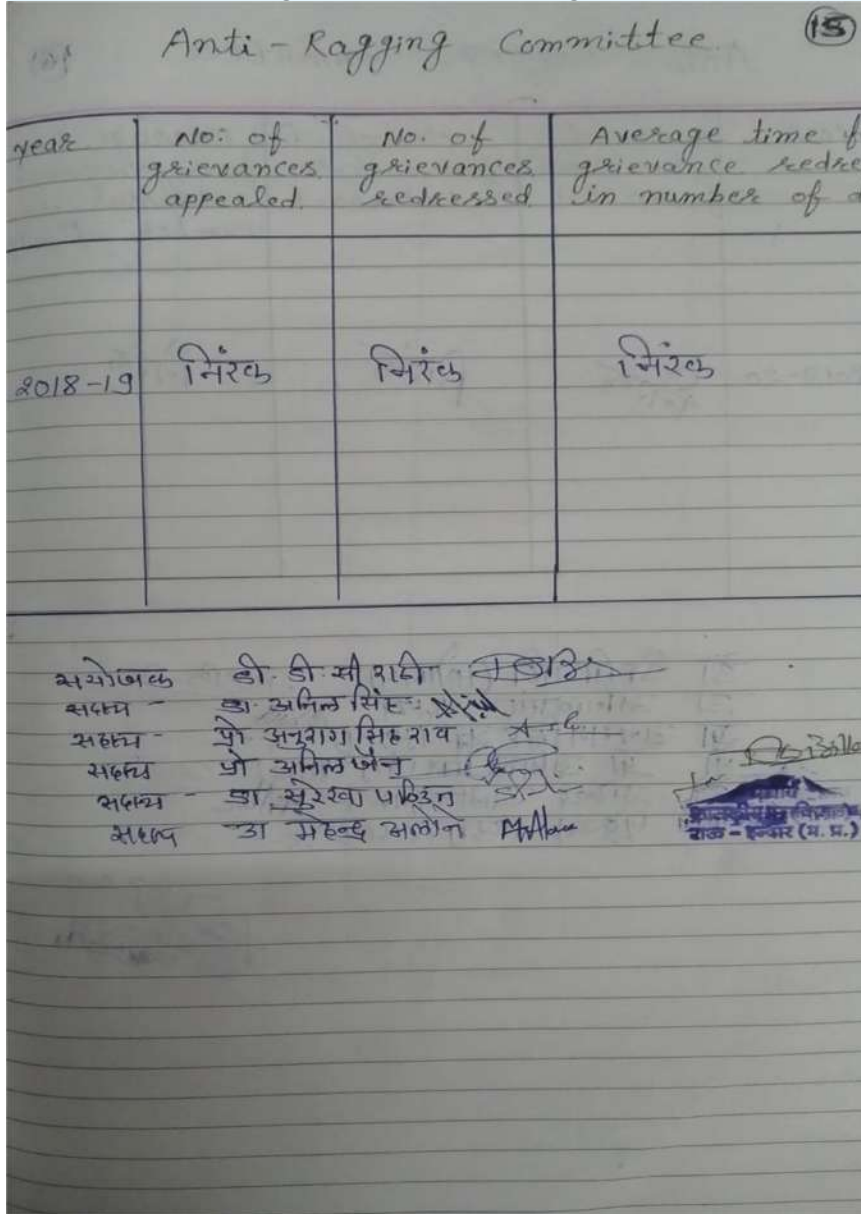 Anti - Ragging Committee
15
year
No: of grievances appealed.
No. of grievances redressed
Average time
grievance
in number of
2018-19 निरंक निरंक निरंक
सयोजक डी. डी. सी राठी
सदस्य - डा. अनिल सिंह
सदस्य - प्रो अनुराग सिंह राव
सदस्य प्रो अनिल जैन
सदस्य - डा सुरेखा
सदस्य डा महेन्द्र अलोने
राऊ - इन्दौर (म. प्र.)